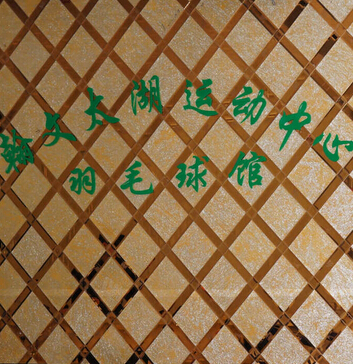 文太湖运动中心
羽毛球馆